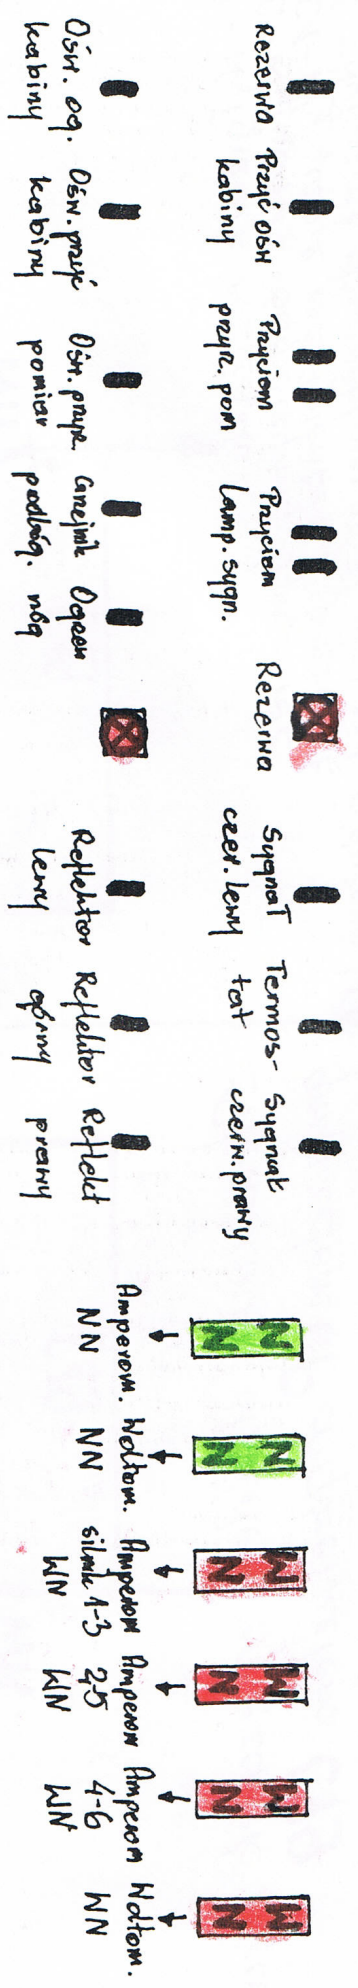 Rezerwa
Przyć ośw
kabiny
Przyciem
przyrz. pom
Przyciem
lamp. sygn.
Rezerwa
Sygnał
czer. lewy
Termos-
tat
Sygnał
czerw. prawy
Ośw. og.
kabiny
Ośw. przyć
kabiny
Ośw. przyrz.
pomiar
Grzejnik
podłóg.
Ogrzew
nóg
Reflektor
lewy
Reflektor
górny
Reflekt
prawy
N
N
Amperom.
NN
N
N
Woltom.
NN
W
N
Amperom
silnik 1-3
WN
W
N
Amperom
2-5
WN
W
N
Amperom
4-6
WN
W
N
Woltom.
WN